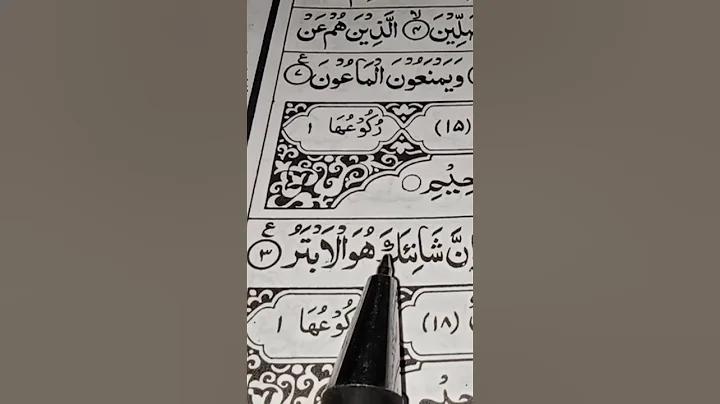 الَّذِيْنَ هُمْ عَنْ ۙ﴿۴﴾
وَيَمْنَعُوْنَ الْمَاعُوْنَ ﴿۷﴾ ع
(۱۵) رُكُوْعُهَا ۱
اِنَّ شَانِئَكَ هُوَ الْاَبْتَرُ ﴿۳﴾ ع
(۱۸) رُكُوْعُهَا ۱